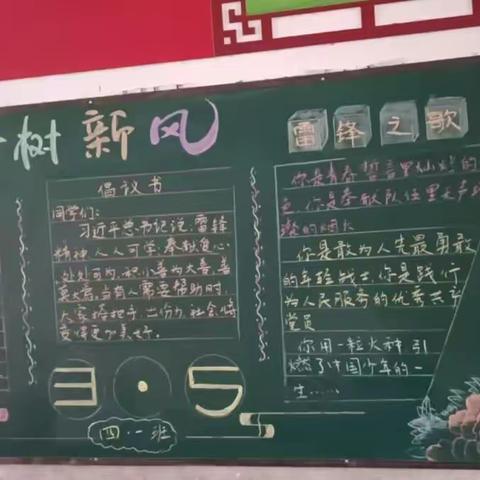 树新风
倡议书
同学们:
习近平总书记说,雷锋
精神人人可学,奉献爱心
处处可为,积小善为大善,善
莫大焉,当有人需要帮助时,
大家搭把手,出份力,社会将
变得更加美好。
3·5
四·一班
雷锋之歌
你是青春誓言里灿烂的
你是奉献队伍里
你是敢为人先最勇敢
的年轻战士,你是践行
为人民服务的优秀共产
党员
你用一粒火种引
燃了中国少年的一
生……